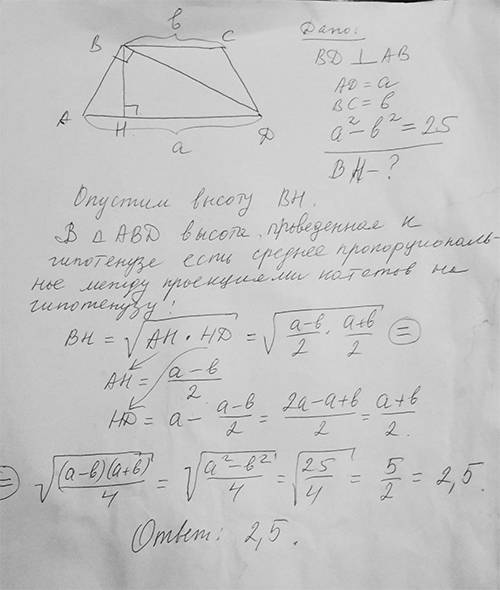 в
B C
A H D
a
Дано:
BD ⊥ AB
AD = a
BC = в
a² − в² = 25
BH − ?
Опустим высоту BH.
В △ ABD высота, проведенная к
гипотенузе есть среднее пропорциональ-
ное между проекциями катетов на
гипотенузу!
BH = √(AH · HD) = √((a−в)/2 · (a+в)/2) =
AH = (a−в)/2
HD = a − (a−в)/2 = (2a−a+в)/2 = (a+в)/2.
= √((a−в)(a+в)/4) = √((a²−в²)/4) = √(25/4) = 5/2 = 2,5.
Ответ: 2,5.